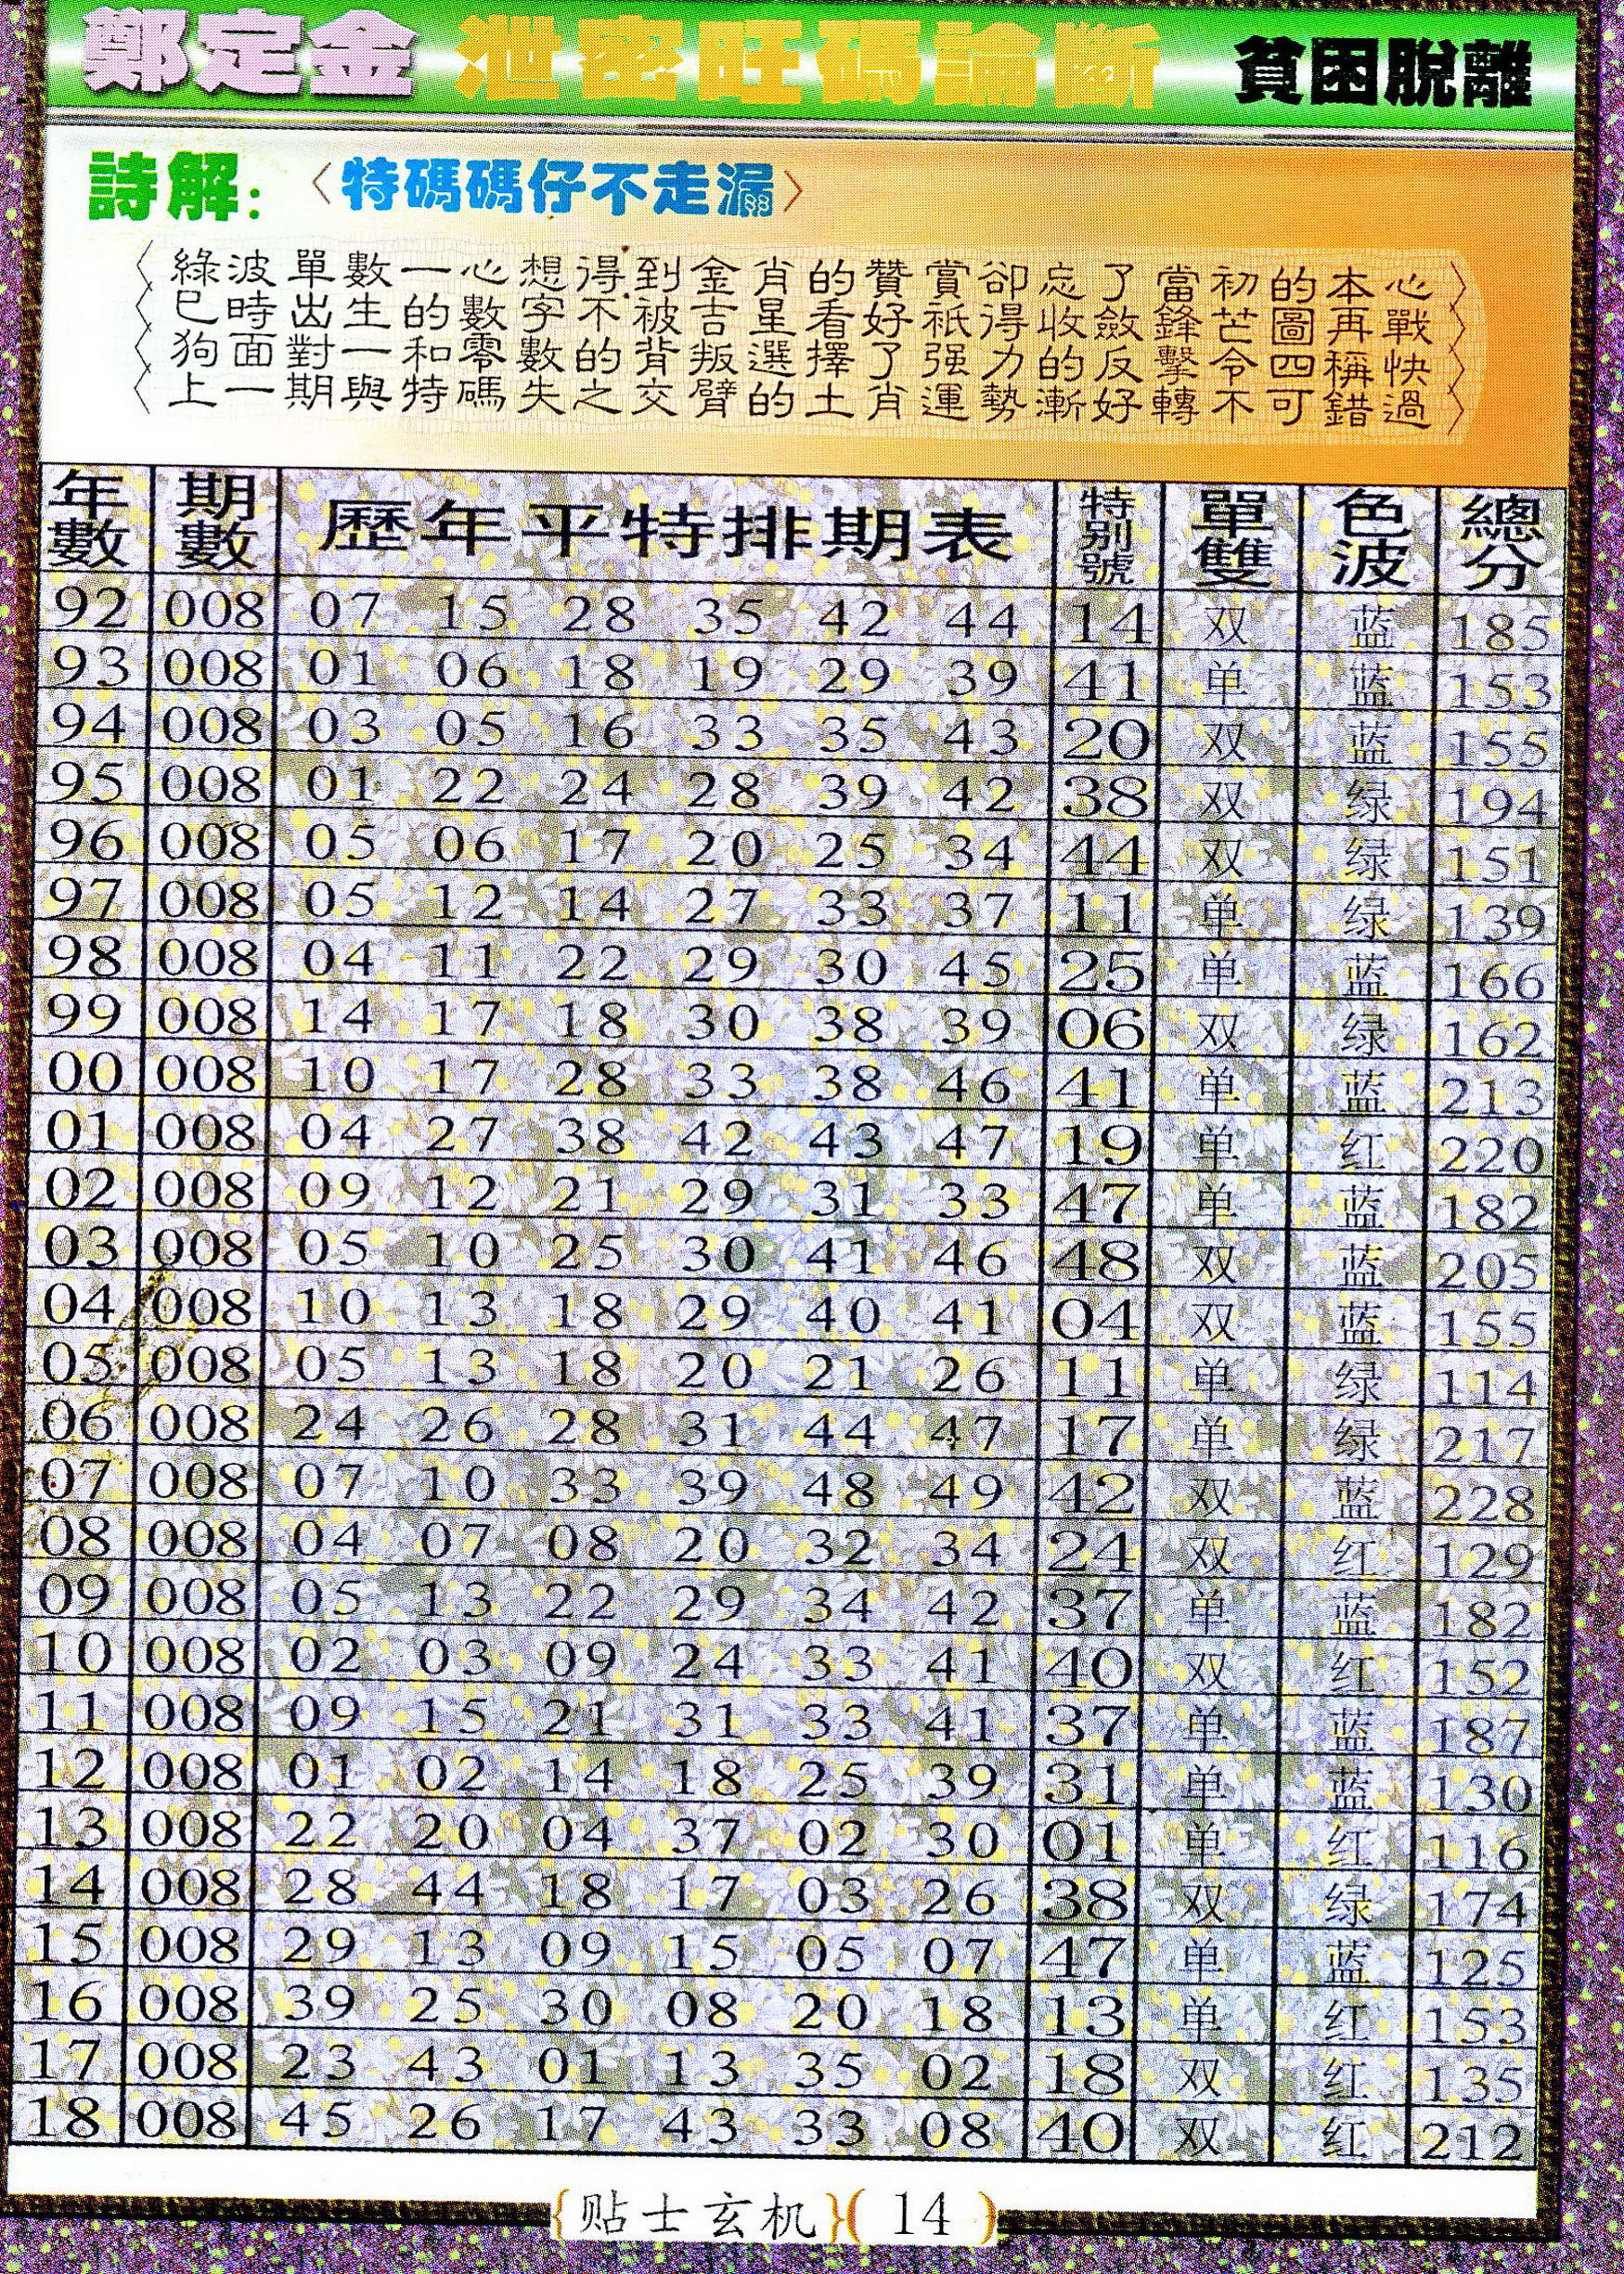 鄭定金 泄密旺碼論斷 貧困脫離
詩解: 〈特碼碼仔不走漏〉
綠波單數一心想得到金肖的贊賞卻忘了當初的本心
巳時出生的數字不被吉星看好祇得收斂鋒芒圖再戰
狗面對一和零數的背叛選擇了强力的反擊令四稱快
上一期與特碼失之交臂的土肖運勢漸好轉不可錯過
年數 期數 歷年平特排期表 特别號 單雙 色波 總分
92 008 07 15 28 35 42 44 14 双 蓝 185
93 008 01 06 18 19 29 39 41 单 蓝 153
94 008 03 05 16 33 35 43 20 双 蓝 155
95 008 01 22 24 28 39 42 38 双 绿 194
96 008 05 06 17 20 25 34 44 双 绿 151
97 008 05 12 14 27 33 37 11 单 绿 139
98 008 04 11 22 29 30 45 25 单 蓝 166
99 008 14 17 18 30 38 39 06 双 绿 162
00 008 10 17 28 33 38 46 41 单 蓝 213
01 008 04 27 38 42 43 47 19 单 红 220
02 008 09 12 21 29 31 33 47 单 蓝 182
03 008 05 10 25 30 41 46 48 双 蓝 205
04 008 10 13 18 29 40 41 04 双 蓝 155
05 008 05 13 18 20 21 26 11 单 绿 114
06 008 24 26 28 31 44 47 17 单 绿 217
07 008 07 10 33 39 48 49 42 双 蓝 228
08 008 04 07 08 20 32 34 24 双 红 129
09 008 05 13 22 29 34 42 37 单 蓝 182
10 008 02 03 09 24 33 41 40 双 红 152
11 008 09 15 21 31 33 41 37 单 蓝 187
12 008 01 02 14 18 25 39 31 单 蓝 130
13 008 22 20 04 37 02 30 01 单 红 116
14 008 28 44 18 17 03 26 38 双 绿 174
15 008 29 13 09 15 05 07 47 单 蓝 125
16 008 39 25 30 08 20 18 13 单 红 153
17 008 23 43 01 13 35 02 18 双 红 135
18 008 45 26 17 43 33 08 40 双 红 212
{贴士玄机}( 14 )